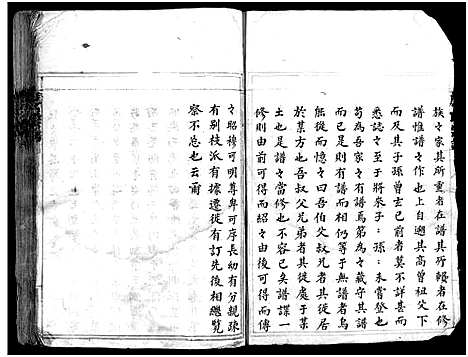 族々家其所重者在譜其所賴者在修
譜惟譜々作也上自遡其高曾祖父下
而及其子孫曾玄已前者莫不詳甚而
悉誌々至于將來子孫々未嘗登也
苟為吾家々有譜焉第為々藏守其譜
而已是則有譜而相仍等于無譜者烏
能從而憶々曰吾伯父叔兄者其徙居
於某方也吾叔父兄弟者其徙處于某
土也是譜々當修也不容已矣譜謀一
修則由前可得而紹々由後可得而傳
々昭穆可明尊卑可序長幼有分親疎
有别枝派有據遷徙有訂先後相繼覧
察不忽也云爾